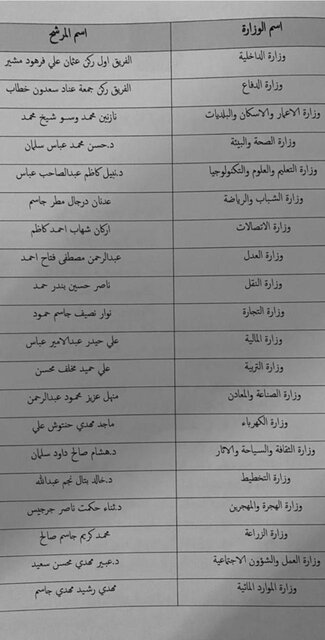 اسم الوزارة اسم المرشح
وزارة الداخلية الفريق اول ركن عثمان علي فرهود مشير
وزارة الدفاع الفريق ركن جمعة عناد سعدون خطاب
وزارة الاعمار والاسكان والبلديات نازنين محمد وسو شيخ محمد
وزارة الصحة والبيئة د.حسن محمد عباس سلمان
وزارة التعليم والعلوم والتكنولوجيا د.نبيل كاظم عبدالصاحب عباس
وزارة الشباب والرياضة عدنان درجال مطر جاسم
وزارة الاتصالات اركان شهاب احمد كاظم
وزارة العدل عبدالرحمن مصطفى فتاح احمد
وزارة النقل ناصر حسين بندر حمد
وزارة التجارة نوار نصيف جاسم حمود
وزارة المالية علي حيدر عبدالامير عباس
وزارة التربية علي حميد مخلف محسن
وزارة الصناعة والمعادن منهل عزيز محمود عبدالرحمن
وزارة الكهرباء ماجد مهدي حنتوش علي
وزارة الثقافة والسياحة والاثار د.هشام صالح داود سلمان
وزارة التخطيط د.خالد بتال نجم عبدالله
وزارة الهجرة والمهجرين د.ثناء حكمت ناصر جرجيس
وزارة الزراعة محمد كريم جاسم صالح
وزارة العمل والشؤون الاجتماعية د.عبير مهدي محسن سعيد
وزارة الموارد المائية مهدي رشيد مهدي جاسم